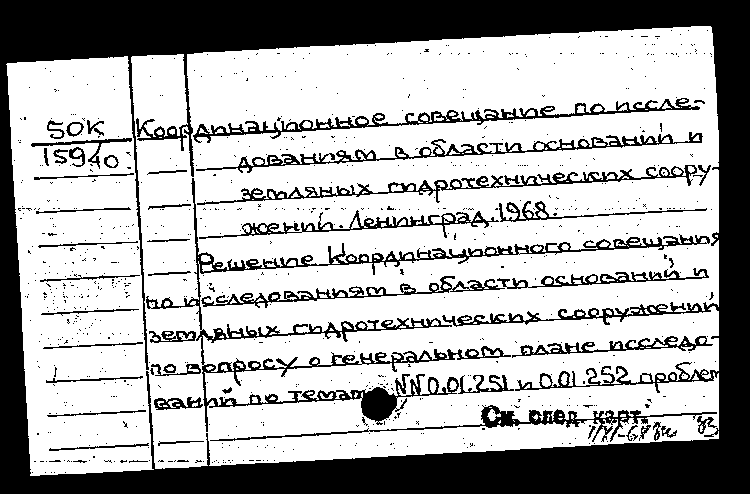 50К
15940
Координационное совещание по иссле-
дованиям в области оснований и
земляных гидротехнических соору-
жений. Ленинград. 1968.
Решение Координационного совещания
по исследованиям в области оснований и
земляных гидротехнических сооружений
по вопросу о генеральном плане исследо-
ваний по темам NN 0.01.251 и 0.01.252 проблем
См. след. карт.